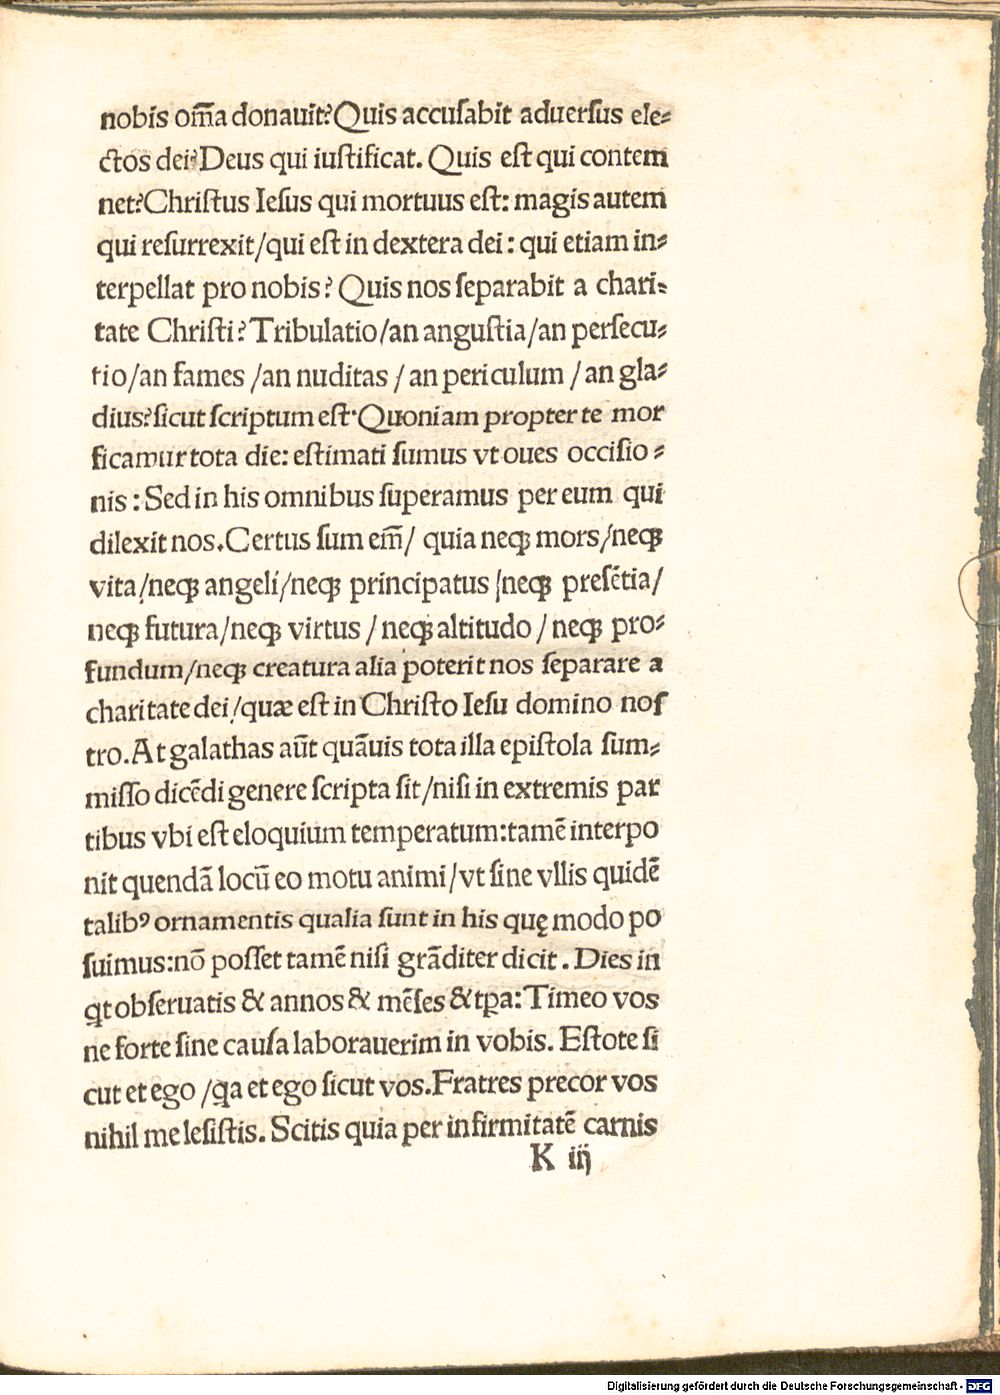 nobis om̅a donauit?Quis accuſabit aduerſus ele⸗
ctos dei?Deus qui iuſtificat. Quis eſt qui contem
net?Chriſtus Ieſus qui mortuus eſt: magis autem
qui reſurrexit/qui eſt in dextera dei: qui etiam in⸗
terpellat pro nobis? Quis nos ſeparabit a chari⸗
tate Chriſti? Tribulatio/an anguſtia/an perſecu⸗
tio/an fames /an nuditas / an periculum / an gla⸗
dius?ſicut ſcriptum eſt·Quoniam propter te mor
ficamur tota die: eſtimati ſumus vt oues occiſio⸗
nis: Sed in his omnibus ſuperamus per eum qui
dilexit nos.Certus ſum em̅/ quia neqꝫ mors/neqꝫ
vita/neqꝫ angeli/neqꝫ principatus /neqꝫ preſētia/
neqꝫ futura/neqꝫ virtus / neqꝫ altitudo / neqꝫ pro⸗
fundum/neqꝫ creatura alia poterit nos ſeparare a
charitate dei/quæ eſt in Chriſto Ieſu domino noſ
tro.At galathas aūt quāuis tota illa epiſtola ſum⸗
miſſo dicēdi genere ſcripta ſit/niſi in extremis par
tibus vbi eſt eloquium temperatum:tamē interpo
nit quendā locū eo motu animi/vt ſine vllis quidē
talibꝰ ornamentis qualia ſunt in his quę modo po
ſuimus:nō poſſet tamē niſi grāditer dicit. Dies in
q̇t obſeruatis & annos & mēſes & tp̄a: Timeo vos
ne forte ſine cauſa laborauerim in vobis. Eſtote ſi
cut et ego /q̇a et ego ſicut vos.Fratres precor vos
nihil me leſiſtis. Scitis quia per infirmitatē carnis
K iij
Digitalisierung gefördert durch die Deutsche Forschungsgemeinschaft - DFG